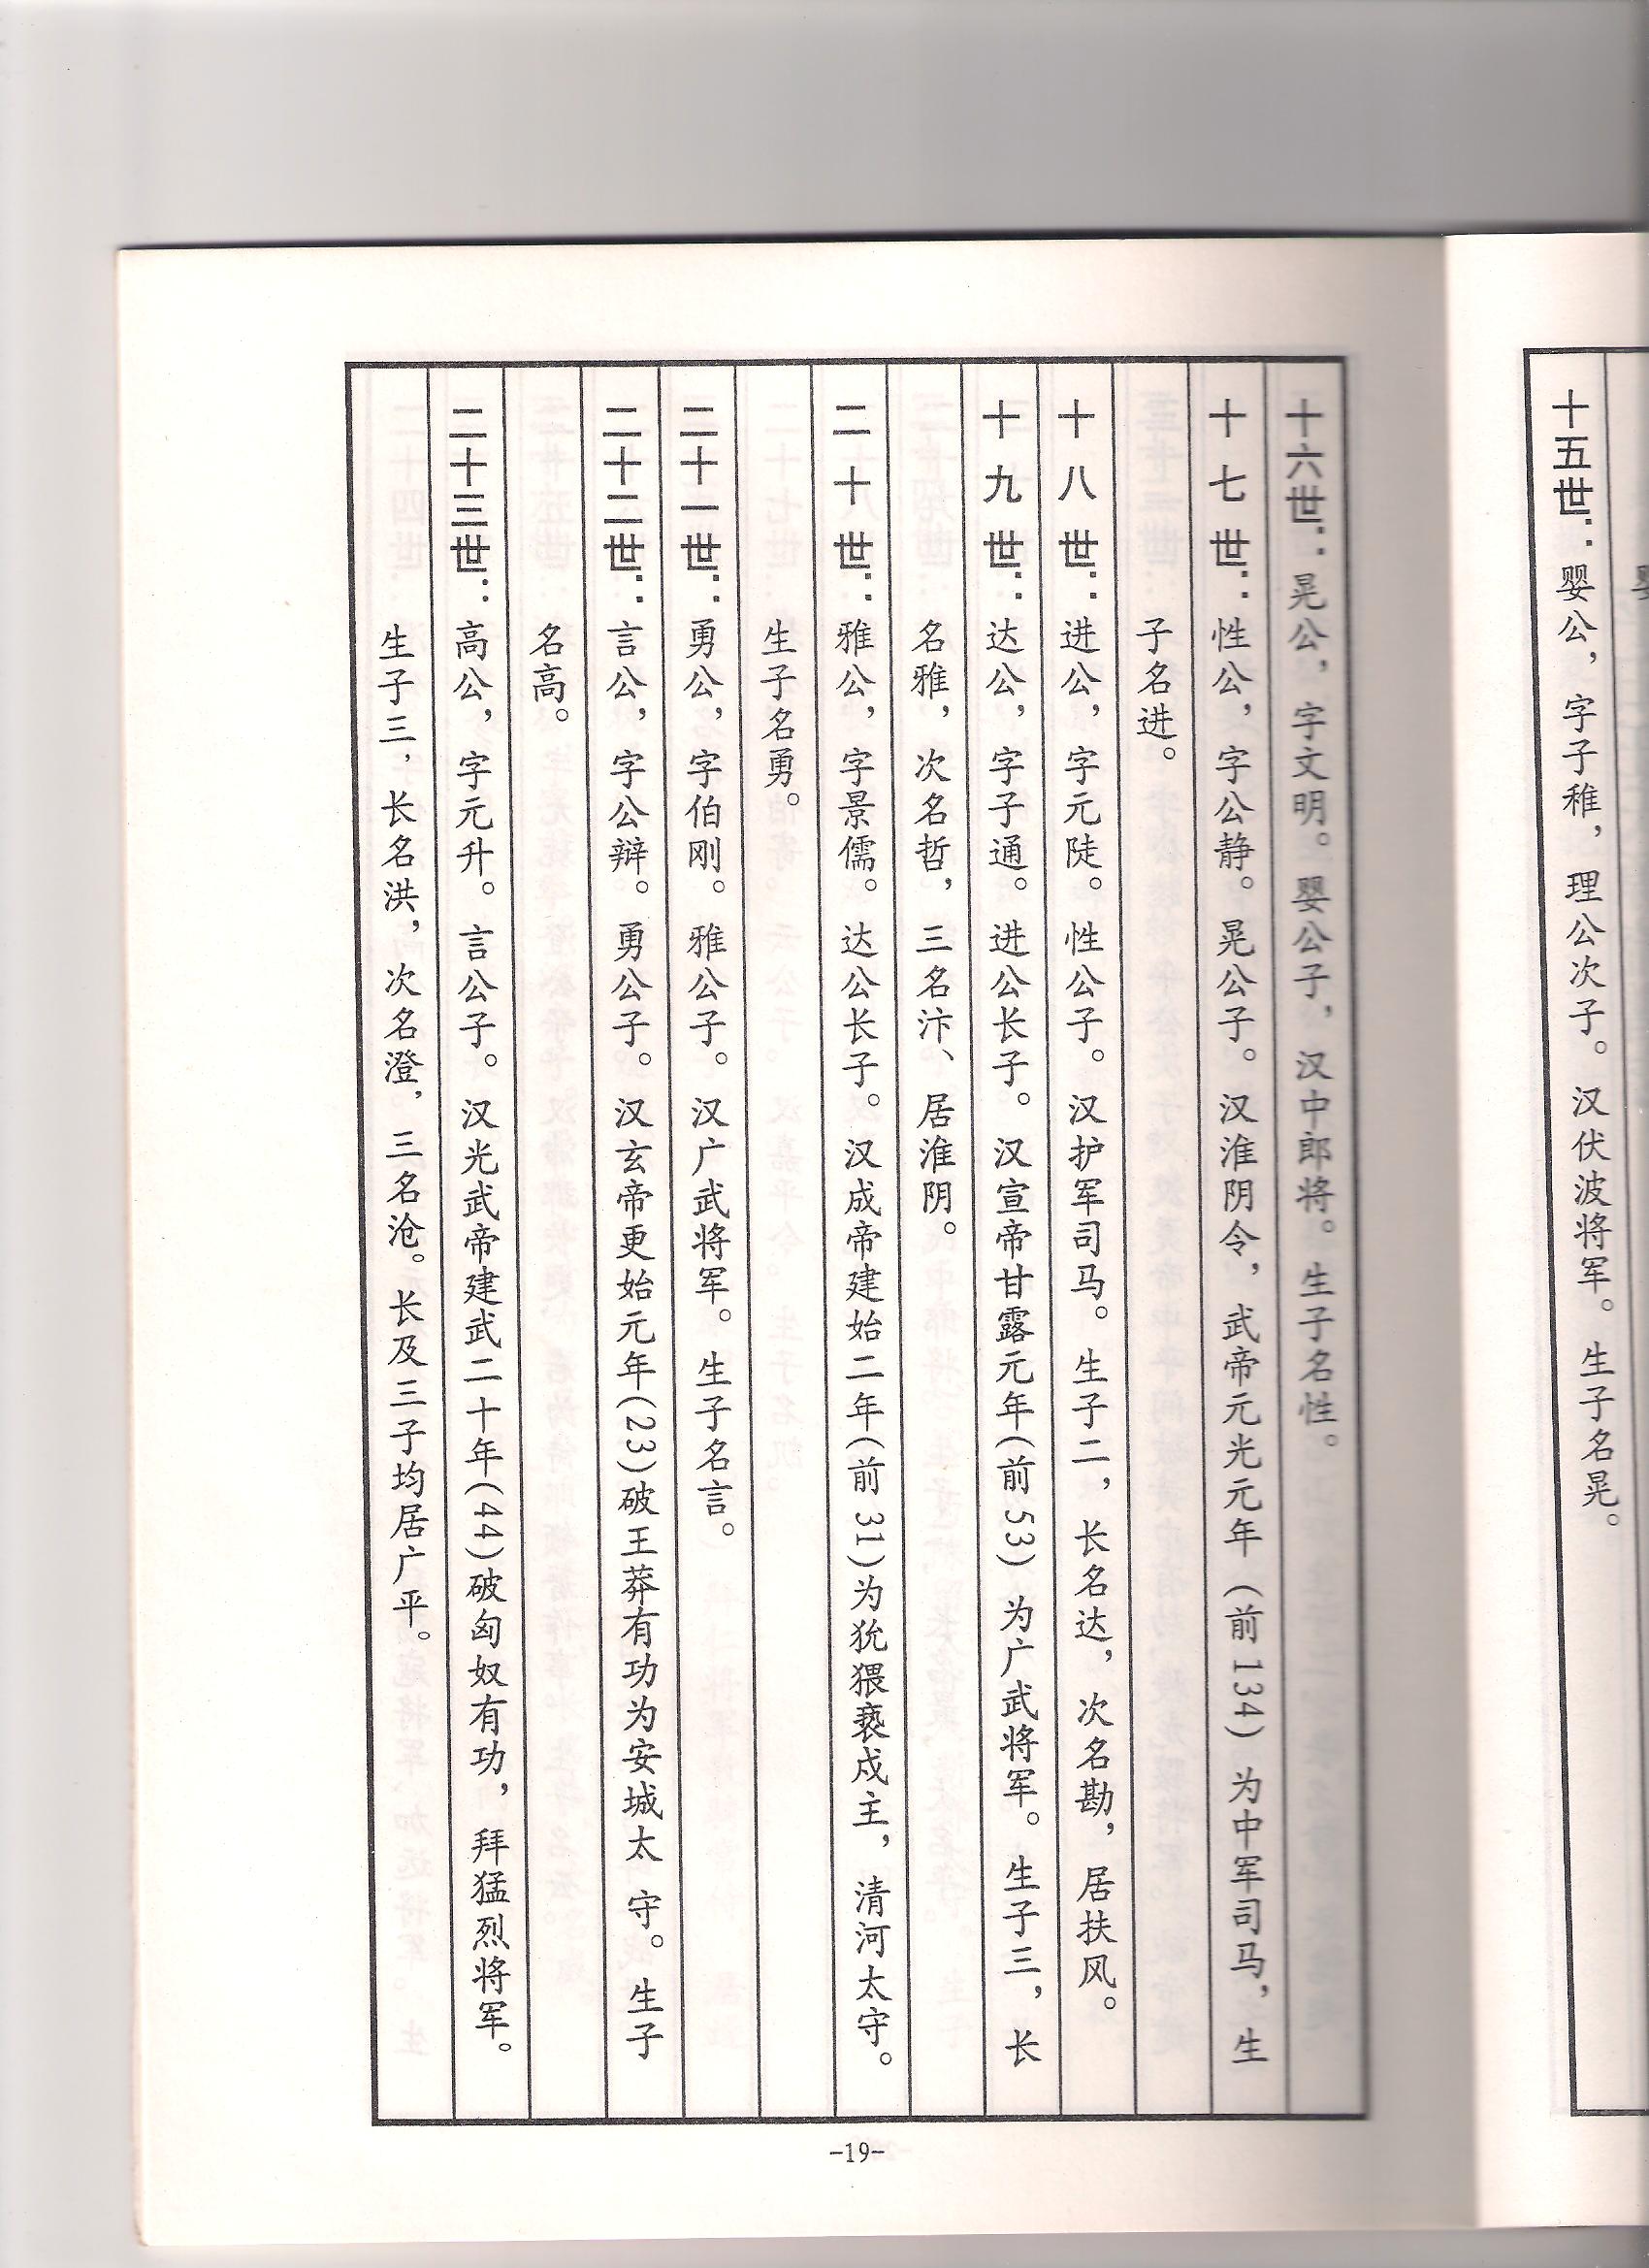 十五世：婴公，字子稚，理公次子。汉伏波将军。生子名晃。
十六世：晃公，字文明。婴公子，汉中郎将。生子名性。
十七世：性公，字公静。晃公子。汉淮阴令，武帝元光元年（前134）为中军司马，生
子名进。
十八世：进公，字元陡。性公子。汉护军司马。生子二，长名达，次名勘，居扶风。
十九世：达公，字子通。进公长子。汉宣帝甘露元年(前53)为广武将军。生子三，长
名雅，次名哲，三名汴、居淮阴。
二十世：雅公，字景儒。达公长子。汉成帝建始二年(前31)为狁猥亵戍主，清河太守。
生子名勇。
二十一世：勇公，字伯刚。雅公子。汉广武将军。生子名言。
二十二世：言公，字公辩。勇公子。汉玄帝更始元年(23)破王莽有功为安城太守。生子
名高。
二十三世：高公，字元升。言公子。汉光武帝建武二十年(44)破匈奴有功，拜猛烈将军。
生子三，长名洪，次名澄，三名沧。长及三子均居广平。
-19-